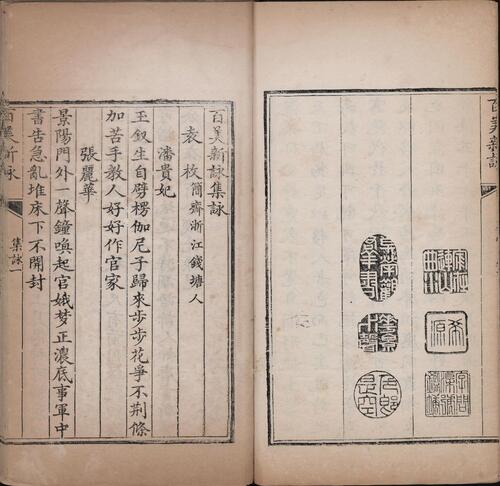 百美新詠
百美新詠集詠
袁枚簡齋浙江錢塘人
潘貴妃
玉釵生自劈楞伽尼子歸來步步花爭不荆條
加苦手教人好好作官家
張麗華
景陽門外一聲鐘喚起宮娥夢正濃底事軍中
書告急亂堆床下不開封
百美新詠
集詠一